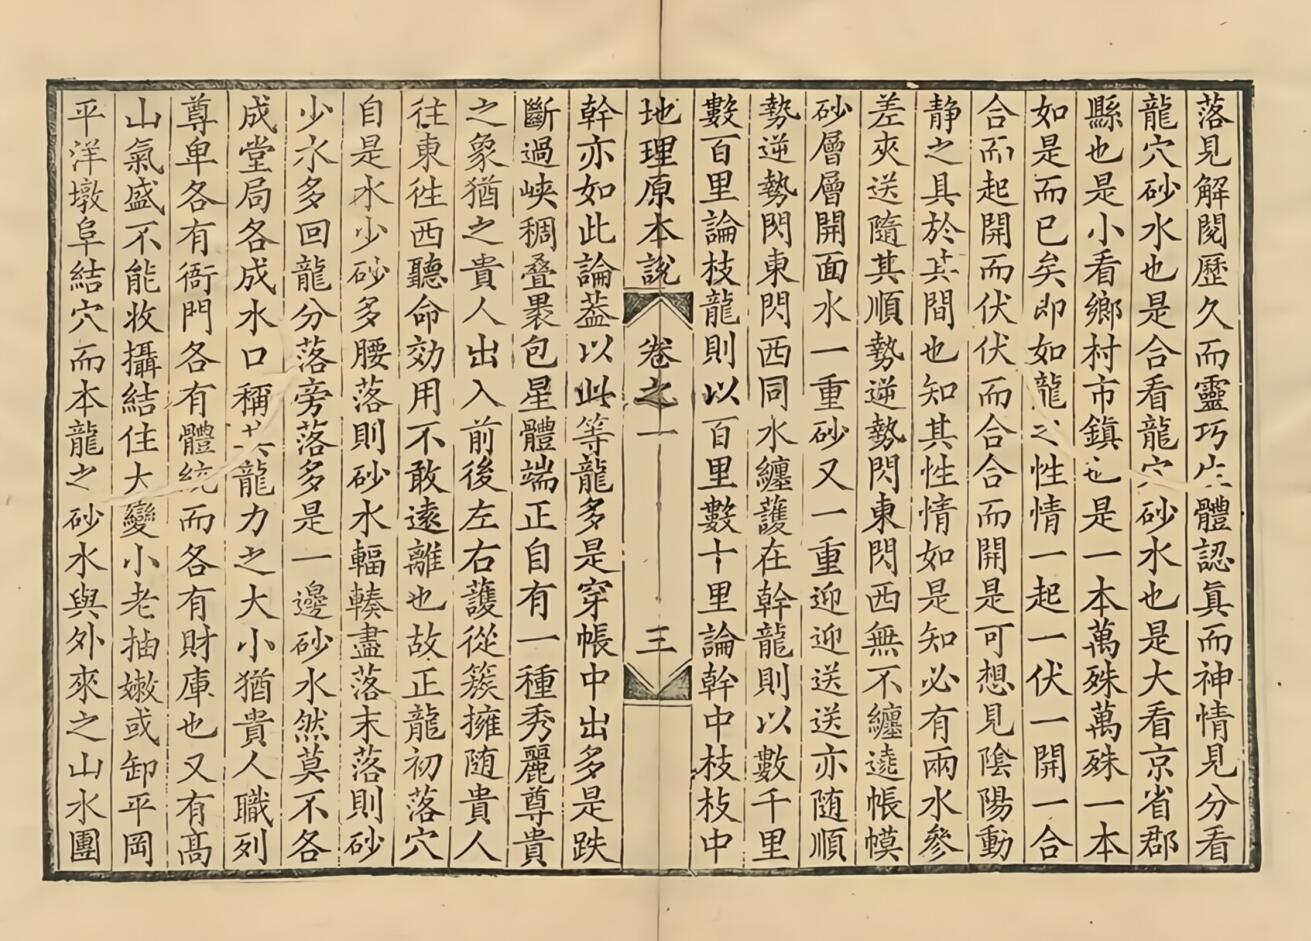 落見解閱歷久而靈巧生體認真而神情見分看
龍穴砂水也是合看龍穴砂水也是大看京省郡
縣也是小看鄉村市鎮也是一本萬殊萬殊一本
如是而已矣即如龍之性情一起一伏一開一合
合而起開而伏伏而合合而開是可想見陰陽動
静之具於其間也知其性情如是知必有兩水參
差夾送隨其順勢逆勢閃東閃西無不纏遶帳幙
砂層層開面水一重砂又一重迎迎送送亦随順
勢逆勢閃東閃西同水纏護在幹龍則以數千里
數百里論枝龍則以百里數十里論幹中枝枝中
地理原本說 卷之一 三
幹亦如此論葢以此等龍多是穿帳中出多是跌
斷過峽稠叠褁包星體端正自有一種秀麗尊貴
之象猶之貴人出入前後左右護從簇擁随貴人
往東徃西聽命効用不敢遠離也故正龍初落穴
自是水少砂多腰落則砂水輻輳盡落末落則砂
少水多回龍分落旁落多是一邊砂水然莫不各
成堂局各成水口稱其龍力之大小猶貴人職列
尊卑各有衙門各有體統而各有財庫也又有髙
山氣盛不能收攝結住大變小老抽嫩或卸平岡
平洋墩阜結穴而本龍之砂水與外來之山水團